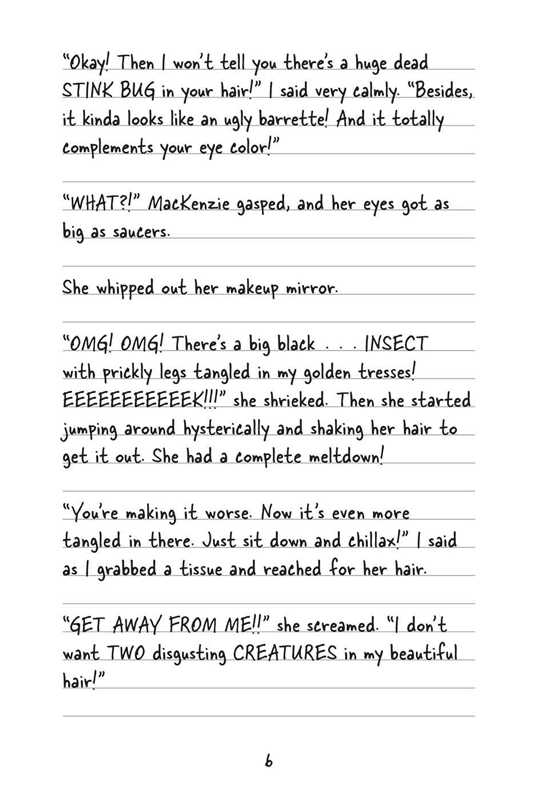 “Okay! Then I won’t tell you there’s a huge dead
STINK BUG in your hair!” I said very calmly. “Besides,
it kinda looks like an ugly barrette! And it totally
complements your eye color!”
“WHAT?!” MacKenzie gasped, and her eyes got as
big as saucers.
She whipped out her makeup mirror.
“OMG! OMG! There’s a big black . . . INSECT
with prickly legs tangled in my golden tresses!
EEEEEEEEEEEK!!!” she shrieked. Then she started
jumping around hysterically and shaking her hair to
get it out. She had a complete meltdown!
“You’re making it worse. Now it’s even more
tangled in there. Just sit down and chillax!” I said
as I grabbed a tissue and reached for her hair.
“GET AWAY FROM ME!!” she screamed. “I don’t
want TWO disgusting CREATURES in my beautiful
hair!”
6